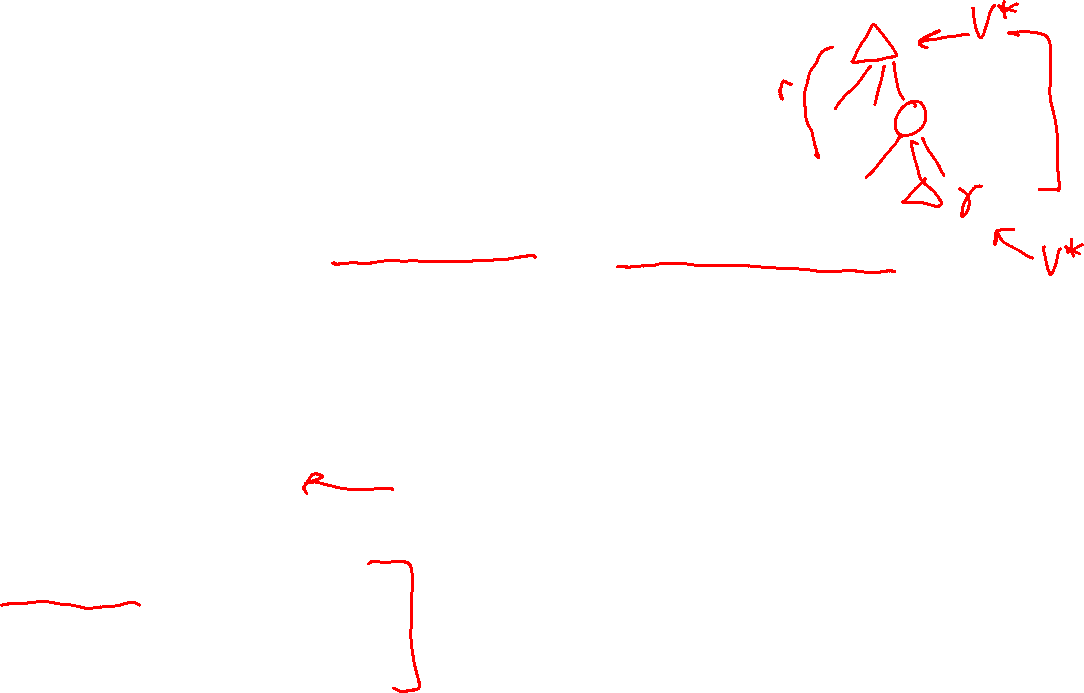 V*
r
γ
V*